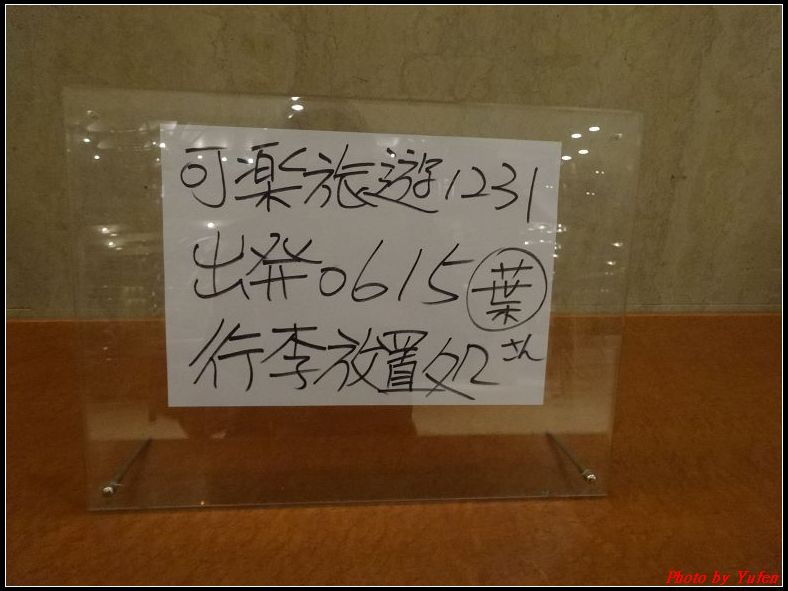 可楽旅遊1231
出発0615 葉
行李放置処 さん
Photo by Yufen